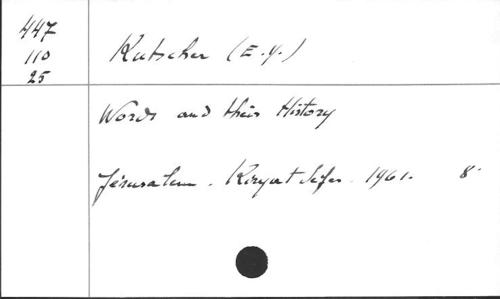 447
110
25
Kutscher (E.y.)
Words and their History
Jérusalem. Kiryat Sefer. 1961. 8°